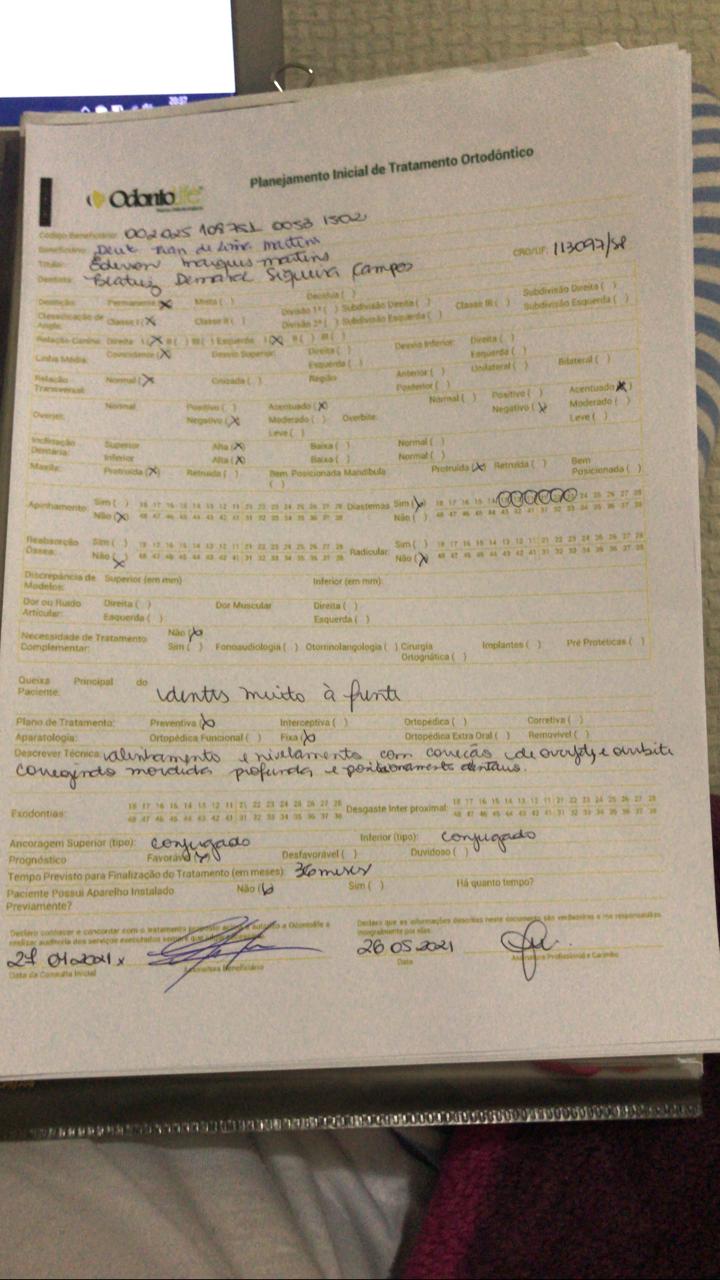 20:57
Planejamento Inicial de Tratamento Ortodôntico
Odontolife
Código Beneficiário: 002025 109751 0053 1502
Beneficiário: de Lima Martins
Titular: Ederson marques martins CRO/UF: 113097/SP
Dentista: Beatriz Siqueira Campos
Dentição: Permanente (X) Mista ( ) Decídua ( )
Classificação de Angle: Classe I (X) Classe II ( ) Divisão 1ª ( ) Subdivisão Direita ( ) Classe III ( ) Subdivisão Direita ( )
Divisão 2ª ( ) Subdivisão Esquerda ( ) Subdivisão Esquerda ( )
Relação Canino: Direita I (X) II ( ) III ( ) Esquerda I (X) II ( ) III ( )
Linha Média: Coincidente (X) Desvio Superior: Direita ( ) Desvio Inferior: Direita ( )
Esquerda ( ) Esquerda ( )
Relação Transversal: Normal (X) Cruzada ( ) Região Anterior ( ) Unilateral ( ) Bilateral ( )
Posterior ( )
Overjet: Normal Positivo ( ) Acentuado (X) Overbite: Normal ( ) Positivo ( ) Acentuado (X)
Negativo (X) Moderado ( ) Negativo (X) Moderado ( )
Leve ( ) Leve ( )
Inclinação Dentária: Superior Alta (X) Baixa ( ) Normal ( )
Inferior Alta (X) Baixa ( ) Normal ( )
Maxila: Protruída (X) Retruída ( ) Bem Posicionada ( ) Mandíbula Protruída (X) Retruída ( ) Bem Posicionada ( )
Apinhamento: Sim ( ) 18 17 16 15 14 13 12 11 21 22 23 24 25 26 27 28 Diastemas: Sim (X) 18 17 16 15 24 25 26 27 28
Não (X) 48 47 46 45 44 43 42 41 31 32 33 34 35 36 37 38 Não ( ) 48 47 46 45 44 43 42 41 31 32 33 34 35 36 37 38
Reabsorção Óssea: Sim ( ) 18 17 16 15 14 13 12 11 21 22 23 24 25 26 27 28 Radicular: Sim ( ) 18 17 16 15 14 13 12 11 21 22 23 24 25 26 27 28
Não (X) 48 47 46 45 44 43 42 41 31 32 33 34 35 36 37 38 Não (X) 48 47 46 45 44 43 42 41 31 32 33 34 35 36 37 38
Discrepância de Modelos: Superior (em mm) Inferior (em mm):
Dor ou Ruído Articular: Direita ( ) Dor Muscular Direita ( )
Esquerda ( ) Esquerda ( )
Necessidade de Tratamento Complementar: Não (X)
Sim ( ) Fonoaudiologia ( ) Otorrinolangologia ( ) Cirurgia Ortognática ( ) Implantes ( ) Pré Protéticas ( )
Queixa Principal do Paciente: dentes muito à frente
Plano de Tratamento: Preventiva (X) Interceptiva ( ) Ortopédica ( ) Corretiva ( )
Aparatologia: Ortopédica Funcional ( ) Fixa (X) Ortopédica Extra Oral ( ) Removível ( )
Descrever Técnica: alinhamento e nivelamento com correção de overjet e overbite
corrigindo mordida profunda e posicionamento dentário.
Exodontias: 18 17 16 15 14 13 12 11 21 22 23 24 25 26 27 28 Desgaste Inter proximal: 18 17 16 15 14 13 12 11 21 22 23 24 25 26 27 28
48 47 46 45 44 43 42 41 31 32 33 34 35 36 37 38 48 47 46 45 44 43 42 41 31 32 33 34 35 36 37 38
Ancoragem Superior (tipo): conjugado Inferior (tipo): conjugado
Prognóstico Favorável (X) Desfavorável ( ) Duvidoso ( )
Tempo Previsto para Finalização do Tratamento (em meses) 36 meses
Paciente Possui Aparelho Instalado Previamente? Não (X) Sim ( ) Há quanto tempo?
Declaro conhecer e concordar com o tratamento proposto a Odontolife a
realizar auditoria dos serviços executados
Declaro que as informações descritas neste documento são verdadeiras e me responsabilizo
integralmente por elas.
27 04 2021 x
26 05 2021
Data da Consulta Inicial Assinatura Beneficiário Data Assinatura Profissional e Carimbo